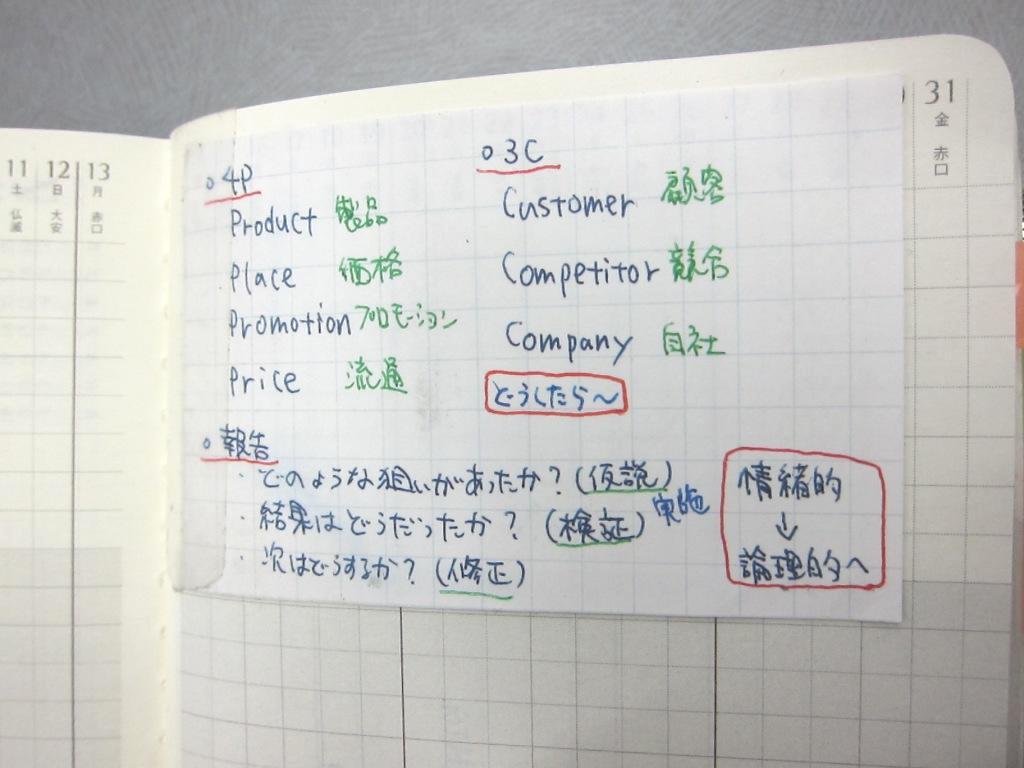 11 12 13
土 日 月
仏滅 大安 赤口
31
金
赤口
○4P
Product 製品
Place 価格
Promotion プロモーション
Price 流通
○3C
Customer 顧客
Competitor 競合
Company 自社
どうしたら～
○報告
・どのような狙いがあったか？（仮説）
・結果はどうだったか？（検証）実施
・次はどうするか？（修正）
情緒的
↓
論理的へ